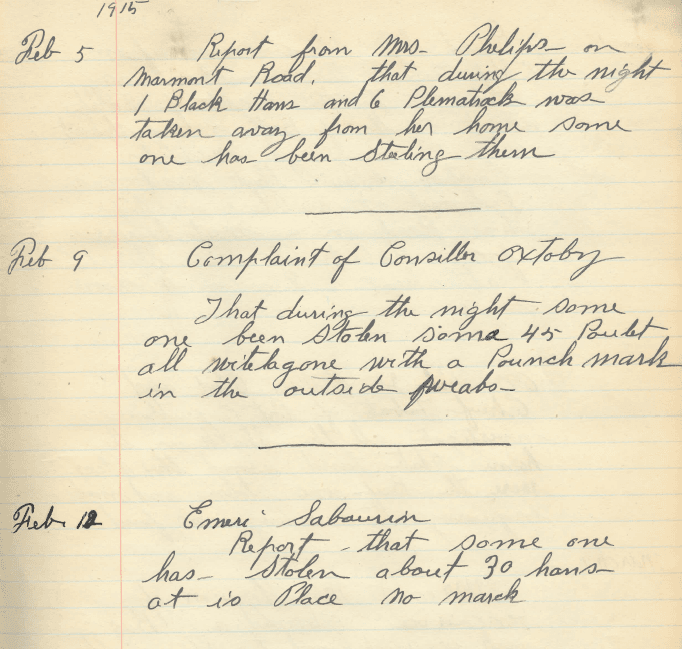 1915
Feb 5 Report from Mrs- Phelips- on
Marmont Road. that during the night
1 Black Hans and 6 Plematrock was
taken away from her home some
one has been Steeling them
Feb 9 Complaint of Consiller Oxtoby
That during the night some
one been Stolen some 45 Poulet
all witelagone with a Pounch mark
in the outside
Feb. 12 Emeri Sabourin
Report - that some one
has- Stolen about 30 hans-
at is Place no marck